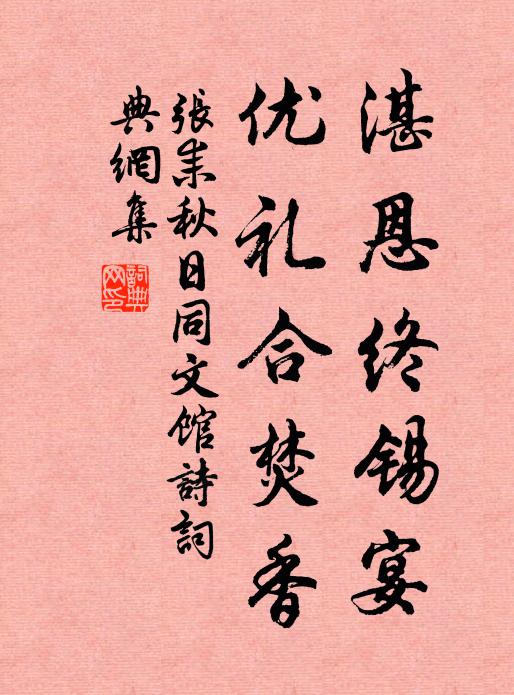 湛恩终锡宴
优礼合焚香
張耒秋日同文館詩詞
典網集
詞典
网印